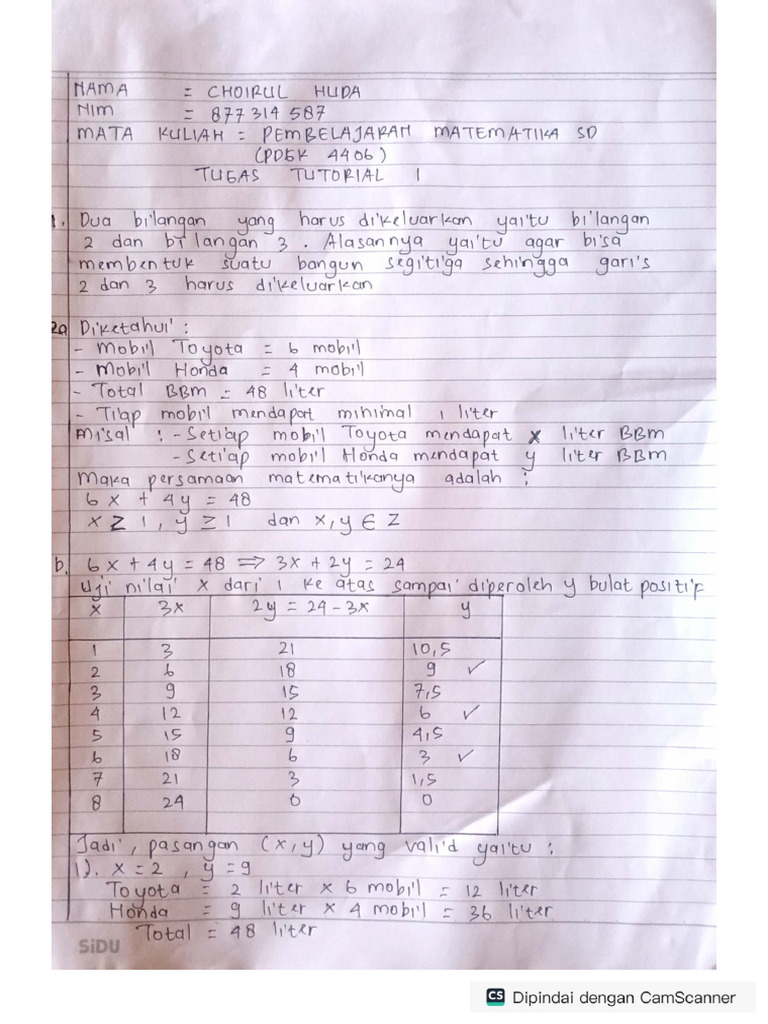 NAMA = CHOIRUL HUDA
NIM = 877314587
MATA KULIAH = PEMBELAJARAN MATEMATIKA SD
(PDGK 4406)
TUGAS TUTORIAL 1
1. Dua bilangan yang harus dikeluarkan yaitu bilangan
2 dan bilangan 3. Alasannya yaitu agar bisa
membentuk suatu bangun segitiga sehingga garis
2 dan 3 harus dikeluarkan
2a Diketahui :
- Mobil Toyota = 6 mobil
- Mobil Honda = 4 mobil
- Total BBM = 48 liter
- Tiap mobil mendapat minimal 1 liter
Misal : - Setiap mobil Toyota mendapat x liter BBM
- Setiap mobil Honda mendapat y liter BBM
Maka persamaan matematikanya adalah :
6x + 4y = 48
x ≥ 1, y ≥ 1 dan x, y ∈ Z
b. 6x + 4y = 48 ⇒ 3x + 2y = 24
Uji nilai x dari 1 ke atas sampai diperoleh y bulat positif
x 3x 2y = 24 - 3x y
1 3 21 10,5
2 6 18 9 ✓
3 9 15 7,5
4 12 12 6 ✓
5 15 9 4,5
6 18 6 3 ✓
7 21 3 1,5
8 24 0 0
Jadi, pasangan (x, y) yang valid yaitu :
1). x = 2, y = 9
Toyota = 2 liter x 6 mobil = 12 liter
Honda = 9 liter x 4 mobil = 36 liter
Total = 48 liter
SiDU
CS Dipindai dengan CamScanner